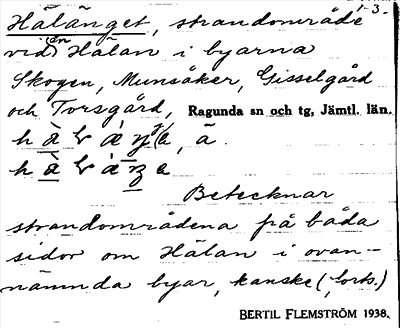 1-3.
Hälänget, strandområde
vid ån Hälan i byarna
Skogen, Munsåker, Gisselgård
och Torsgård, Ragunda sn och tg, Jämtl. län.
Betecknar
strandområdena på båda
sidor om Hälan i ovan-
nämnda byar, kanske (forts.)
BERTIL FLEMSTRÖM 1938.